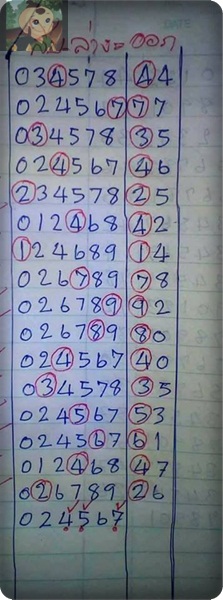 ล่าง ออก
034578 44
024567 77
034578 35
024567 46
234578 25
012468 42
124689 14
026789 78
026789 92
026789 80
024567 40
034578 35
024567 53
024567 61
012468 47
026789 26
024567